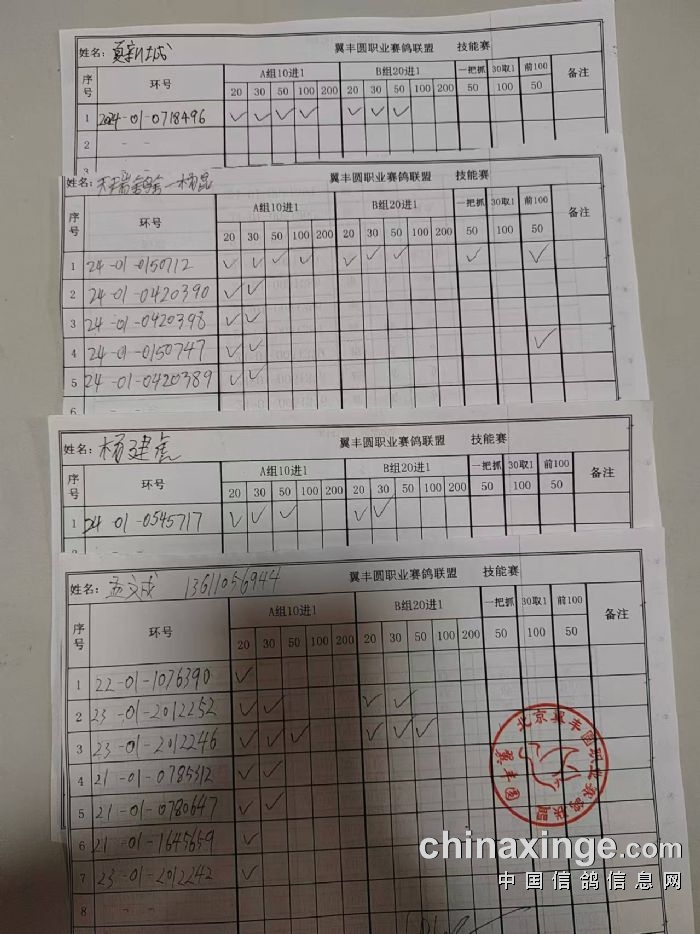 姓名: 翼丰圆职业赛鸽联盟 技能赛
序号 环号 A组10进1 B组20进1 一把抓 30取1 前100 备注
20 30 50 100 200 20 30 50 100 200 50 100 50
1 2024-01-0718496 ✓ ✓ ✓ ✓ ✓ ✓ ✓
2 - -
姓名: 翼丰圆职业赛鸽联盟 技能赛
序号 环号 A组10进1 B组20进1 一把抓 30取1 前100 备注
20 30 50 100 200 20 30 50 100 200 50 100 50
1 24-01-0150712 ✓ ✓ ✓ ✓ ✓ ✓ ✓ ✓ ✓
2 24-01-0420390 ✓ ✓
3 24-01-0420398 ✓ ✓
4 24-01-0150747 ✓ ✓ ✓
5 24-01-0420389 ✓ ✓
6
姓名: 杨建虎 翼丰圆职业赛鸽联盟 技能赛
序号 环号 A组10进1 B组20进1 一把抓 30取1 前100 备注
20 30 50 100 200 20 30 50 100 200 50 100 50
1 24-01-0545717 ✓ ✓ ✓ ✓ ✓
姓名: 孟文成 13611056944 翼丰圆职业赛鸽联盟 技能赛
序号 环号 A组10进1 B组20进1 一把抓 30取1 前100 备注
20 30 50 100 200 20 30 50 100 200 50 100 50
1 22-01-1076390 ✓
2 23-01-2012252 ✓ ✓ ✓ ✓
3 23-01-2012246 ✓ ✓ ✓ ✓ ✓ ✓
4 21-01-0785312 ✓ ✓
5 21-01-0780647 ✓ ✓
6 21-01-1645659 ✓
7 23-01-2012242 ✓
8 - -
北京翼丰圆职业赛鸽联盟
翼丰圆
chinaxinge.com
中国信鸽信息网